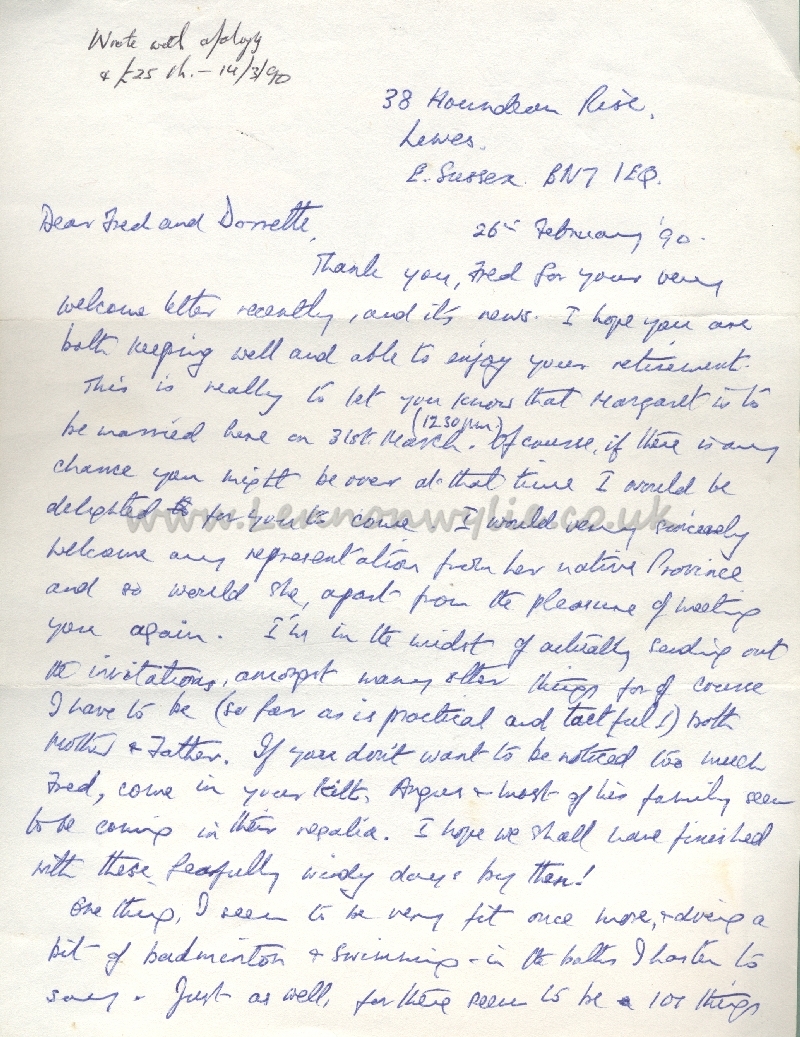 Wrote with apology
& £25 ch. - 14/3/90
38 Houndean Rise,
Lewes.
E. Sussex. BN7 1EQ.
Dear Fred and Dorrette,
26th February '90.
Thank you, Fred for your very
welcome letter recently, and it's news. I hope you are
both keeping well and able to enjoy your retirement.
This is really to let you know that Margaret is to
(12 30 pm)
be married here on 31st March. Of course, if there is any
chance you might be over at that time I would be
delighted for you to come. I would very sincerely
www.Lennonwylie.co.uk
welcome any representation from her native Province
and so would she, apart from the pleasure of meeting
you again. I'm in the midst of actually sending out
the invitations, amongst many other things for of course
I have to be (so far as is practical and tactful!) both
Mother & Father. If you don't want to be noticed too much
Fred, come in your kilt, Angus & most of his family seem
to be coming in their regalia. I hope we shall have finished
with these fearfully windy days by then!
One thing, I seem to be very fit once more, & doing a
bit of badminton & swimming - in the baths I hasten to
say. Just as well, for there seem to be 101 things